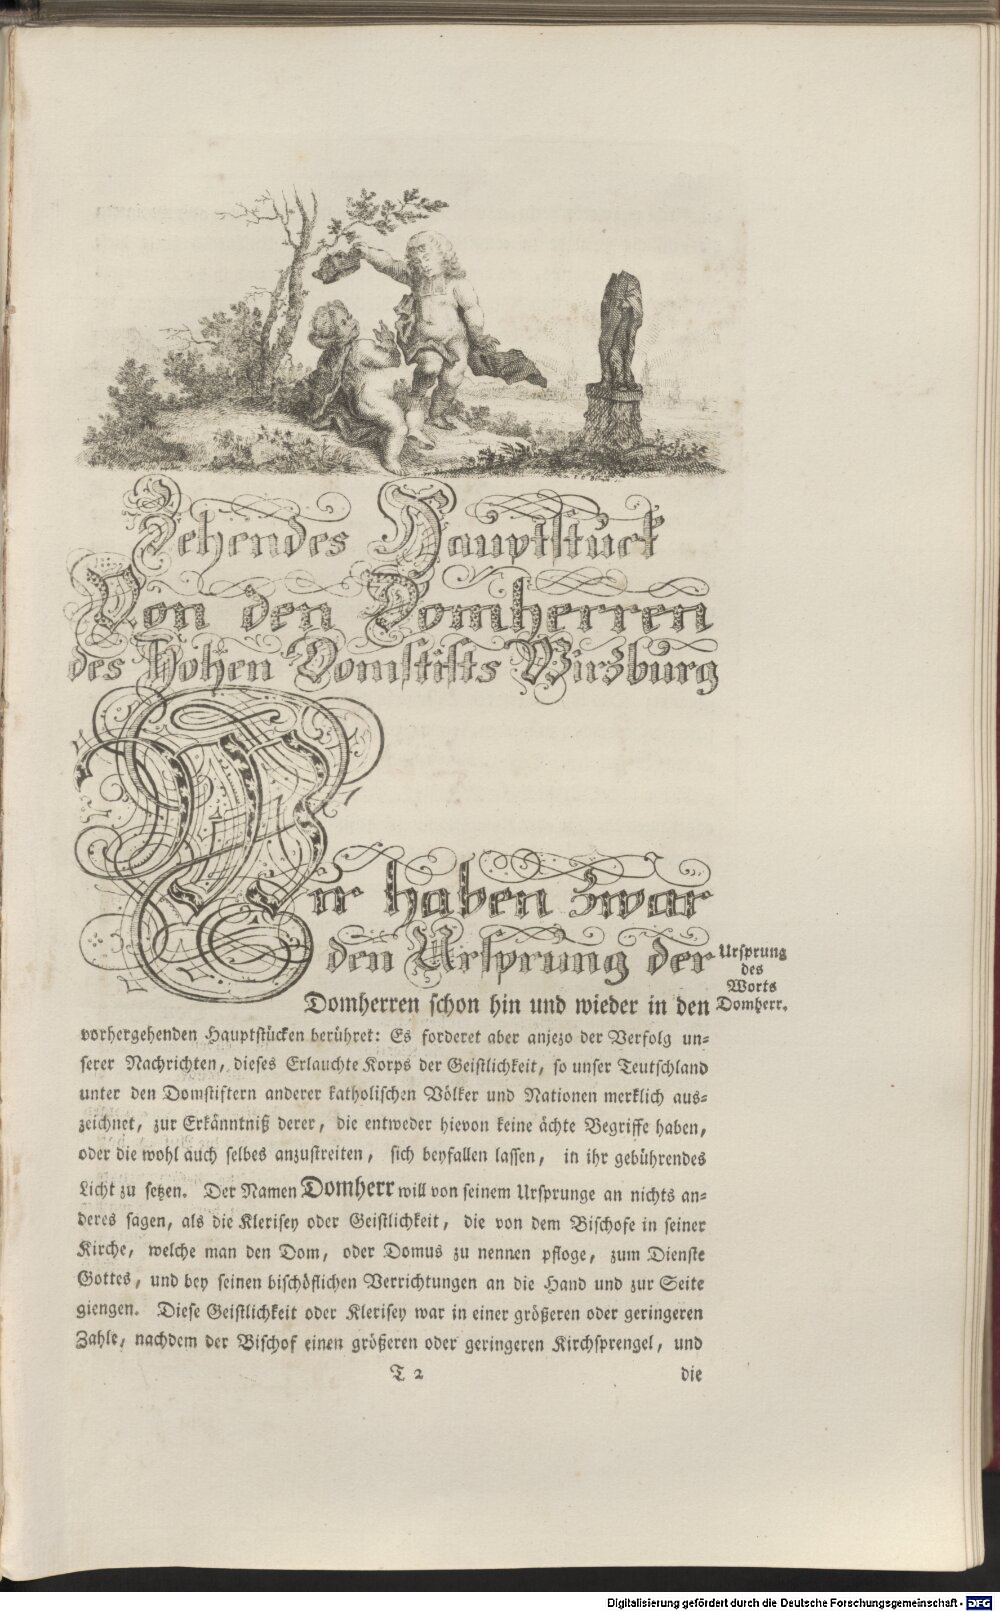 Zehendes Hauptstück
Von den Domherren
des Hohen Domstifts Wirzburg
Wir haben zwar
den Ursprung der
Domherren schon hin und wieder in den
Ursprung
des
Worts
Domherr.
vorhergehenden Hauptstücken berühret: Es forderet aber anjezo der Verfolg un=
serer Nachrichten, dieses Erlauchte Korps der Geistlichkeit, so unser Teutschland
unter den Domstiftern anderer katholischen Völker und Nationen merklich aus=
zeichnet, zur Erkänntniß derer, die entweder hievon keine ächte Begriffe haben,
oder die wohl auch selbes anzustreiten, sich beyfallen lassen, in ihr gebührendes
Licht zu setzen. Der Namen Domherr will von seinem Ursprunge an nichts an=
deres sagen, als die Klerisey oder Geistlichkeit, die von dem Bischofe in seiner
Kirche, welche man den Dom, oder Domus zu nennen pfloge, zum Dienste
Gottes, und bey seinen bischöflichen Verrichtungen an die Hand und zur Seite
giengen. Diese Geistlichkeit oder Klerisey war in einer größeren oder geringeren
Zahle, nachdem der Bischof einen größeren oder geringeren Kirchsprengel, und
T 2
die
Digitalisierung gefördert durch die Deutsche Forschungsgemeinschaft - DFG